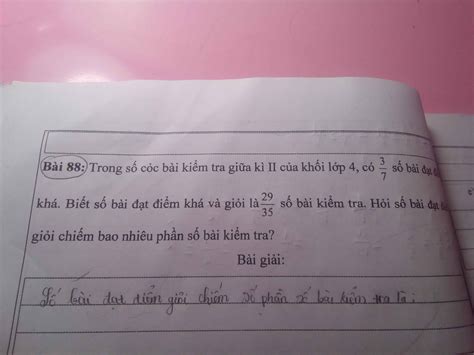 Bài 88: Trong số còc bài kiểm tra giữa kì II của khối lớp 4, có 3/7 số bài đạt
khá. Biết số bài đạt điểm khá và giỏi là 29/35 số bài kiểm tra. Hỏi số bài đạt
giỏi chiếm bao nhiêu phần số bài kiểm tra?
Bài giải:
Số bài đạt điểm giỏi chiếm số phần số bài kiểm tra là: